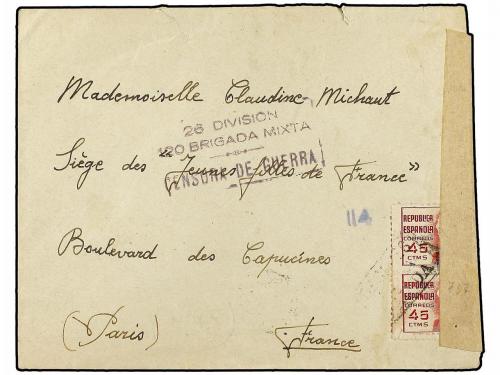 Mademoiselle Claudine Michaut
26 DIVISION
120 BRIGADA MIXTA
Siège des "Jeunes filles de France"
CENSURA DE GUERRA
114
REPUBLICA
ESPAÑOLA
CORREOS
45
CTMS
Boulevard des Capucines
REPUBLICA
ESPAÑOLA
CORREOS
45
CTMS
(Paris) France